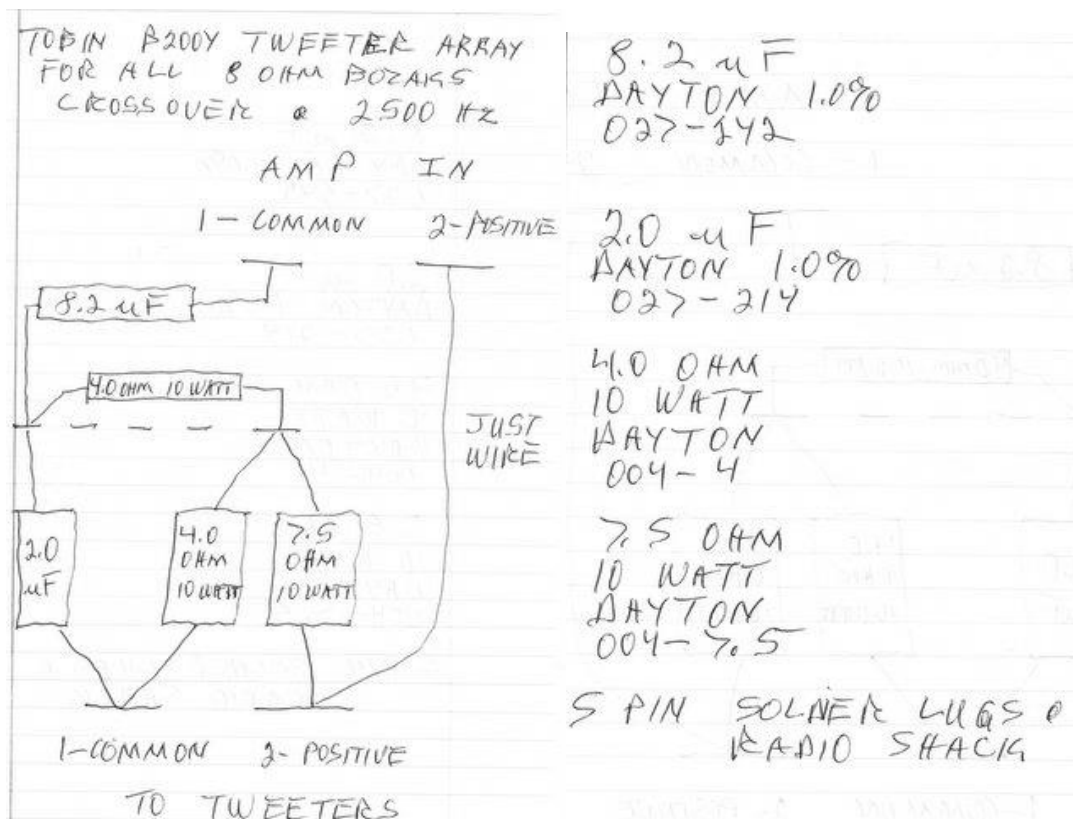 TOBIN B200Y TWEETER ARRAY
FOR ALL 8 OHM BOZAKS
CROSSOVER @ 2500 Hz
AMP IN
1 - COMMON 2 - POSITIVE
8.2 uF
4.0 OHM 10 WATT
JUST
WIRE
2.0
uF
4.0
OHM
10 WATT
7.5
OHM
10 WATT
1 - COMMON 2 - POSITIVE
TO TWEETERS
8.2 uF
DAYTON 1.0%
027-242
2.0 uF
DAYTON 1.0%
027-214
4.0 OHM
10 WATT
DAYTON
004-4
7.5 OHM
10 WATT
DAYTON
004-7.5
5 PIN SOLDER LUGS @
RADIO SHACK